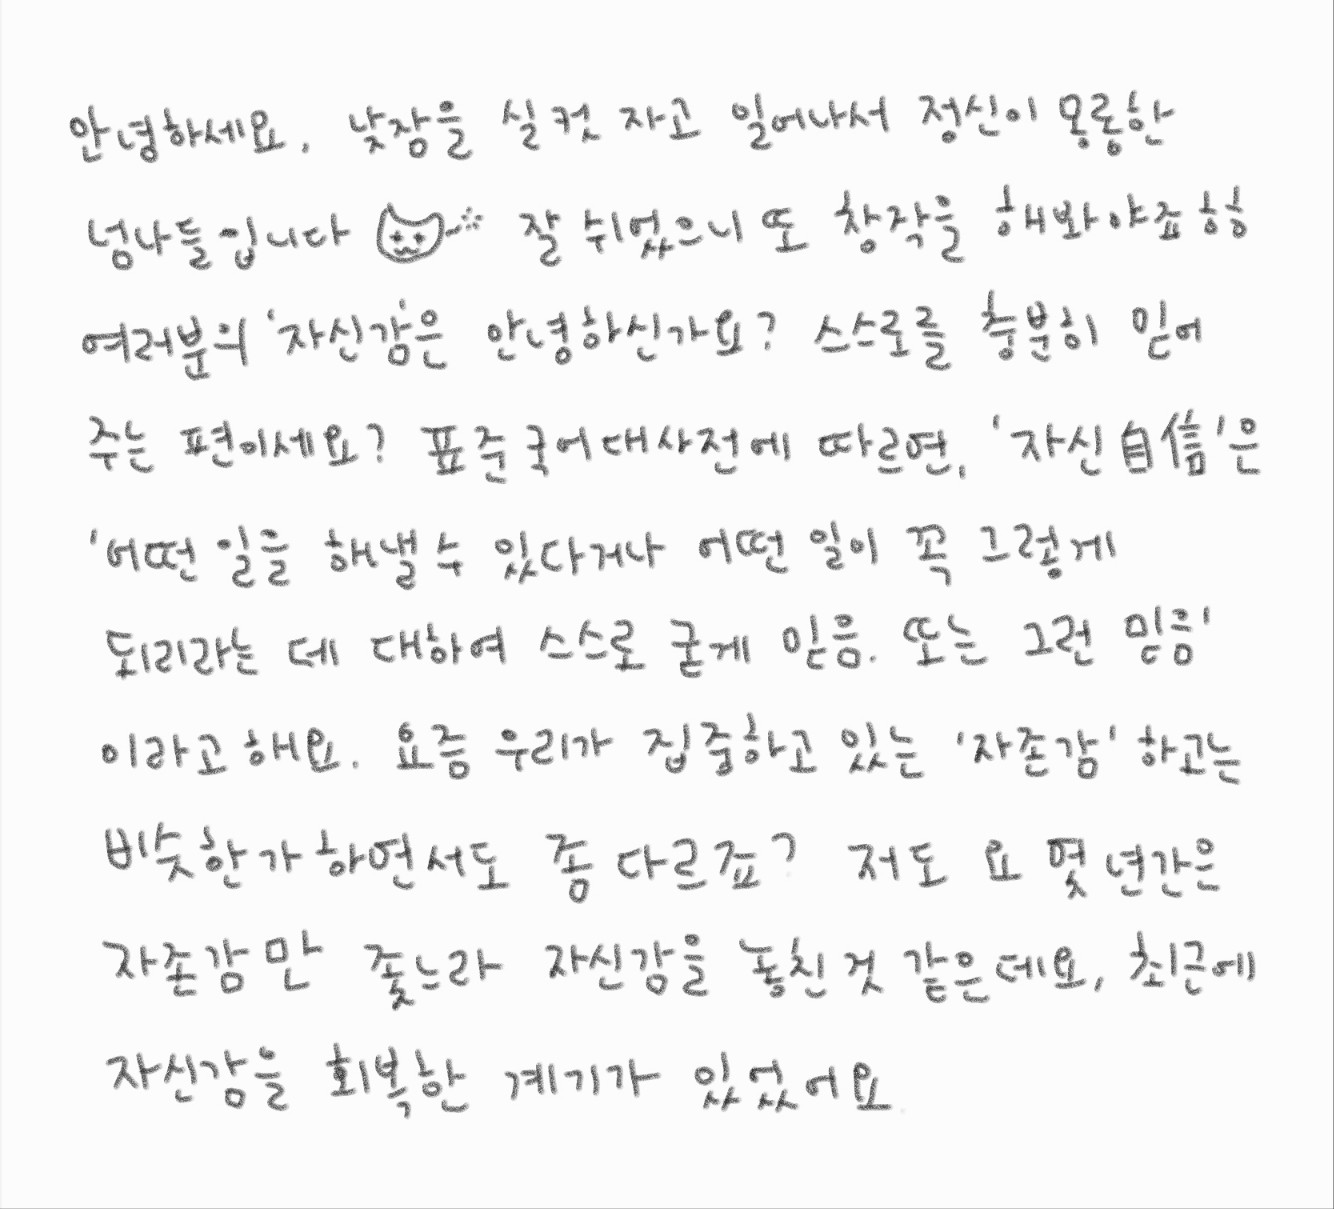 안녕하세요, 낮잠을 실컷 자고 일어나서 정신이 몽롱한
넘나들입니다 잘 쉬었으니 또 창작을 해봐야죠 핳핳
여러분의 '자신감'은 안녕하신가요? 스스로를 충분히 믿어
주는 편이세요? 표준국어대사전에 따르면, '자신自信'은
'어떤 일을 해낼 수 있다거나 어떤 일이 꼭 그렇게
되리라는 데 대하여 스스로 굳게 믿음. 또는 그런 믿음'
이라고 해요. 요즘 우리가 집중하고 있는 '자존감' 하고는
비슷한가 하면서도 좀 다르죠? 저도 요 몇 년간은
자존감만 좇느라 자신감을 놓친 것 같은데요, 최근에
자신감을 회복한 계기가 있었어요